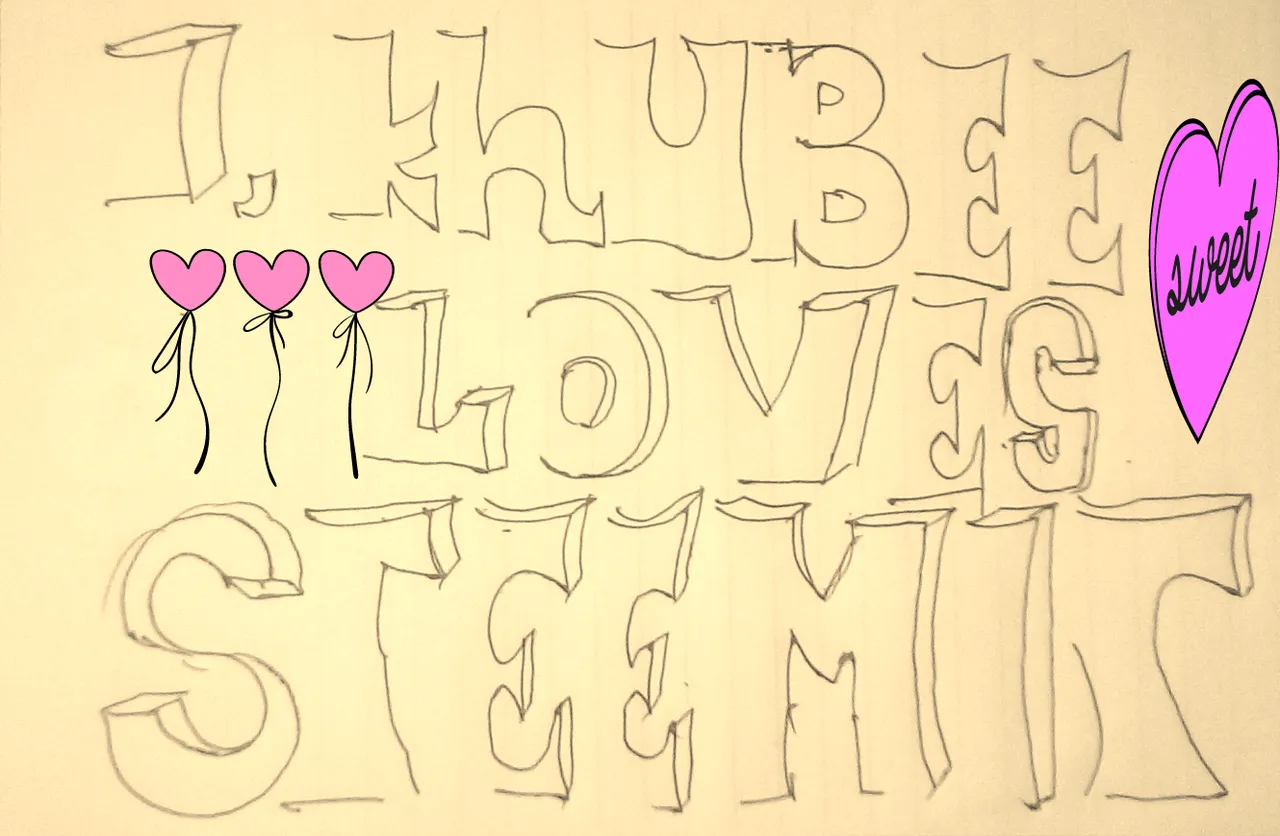 I, KhUBEE
sweet
LOVES
STEEMIT